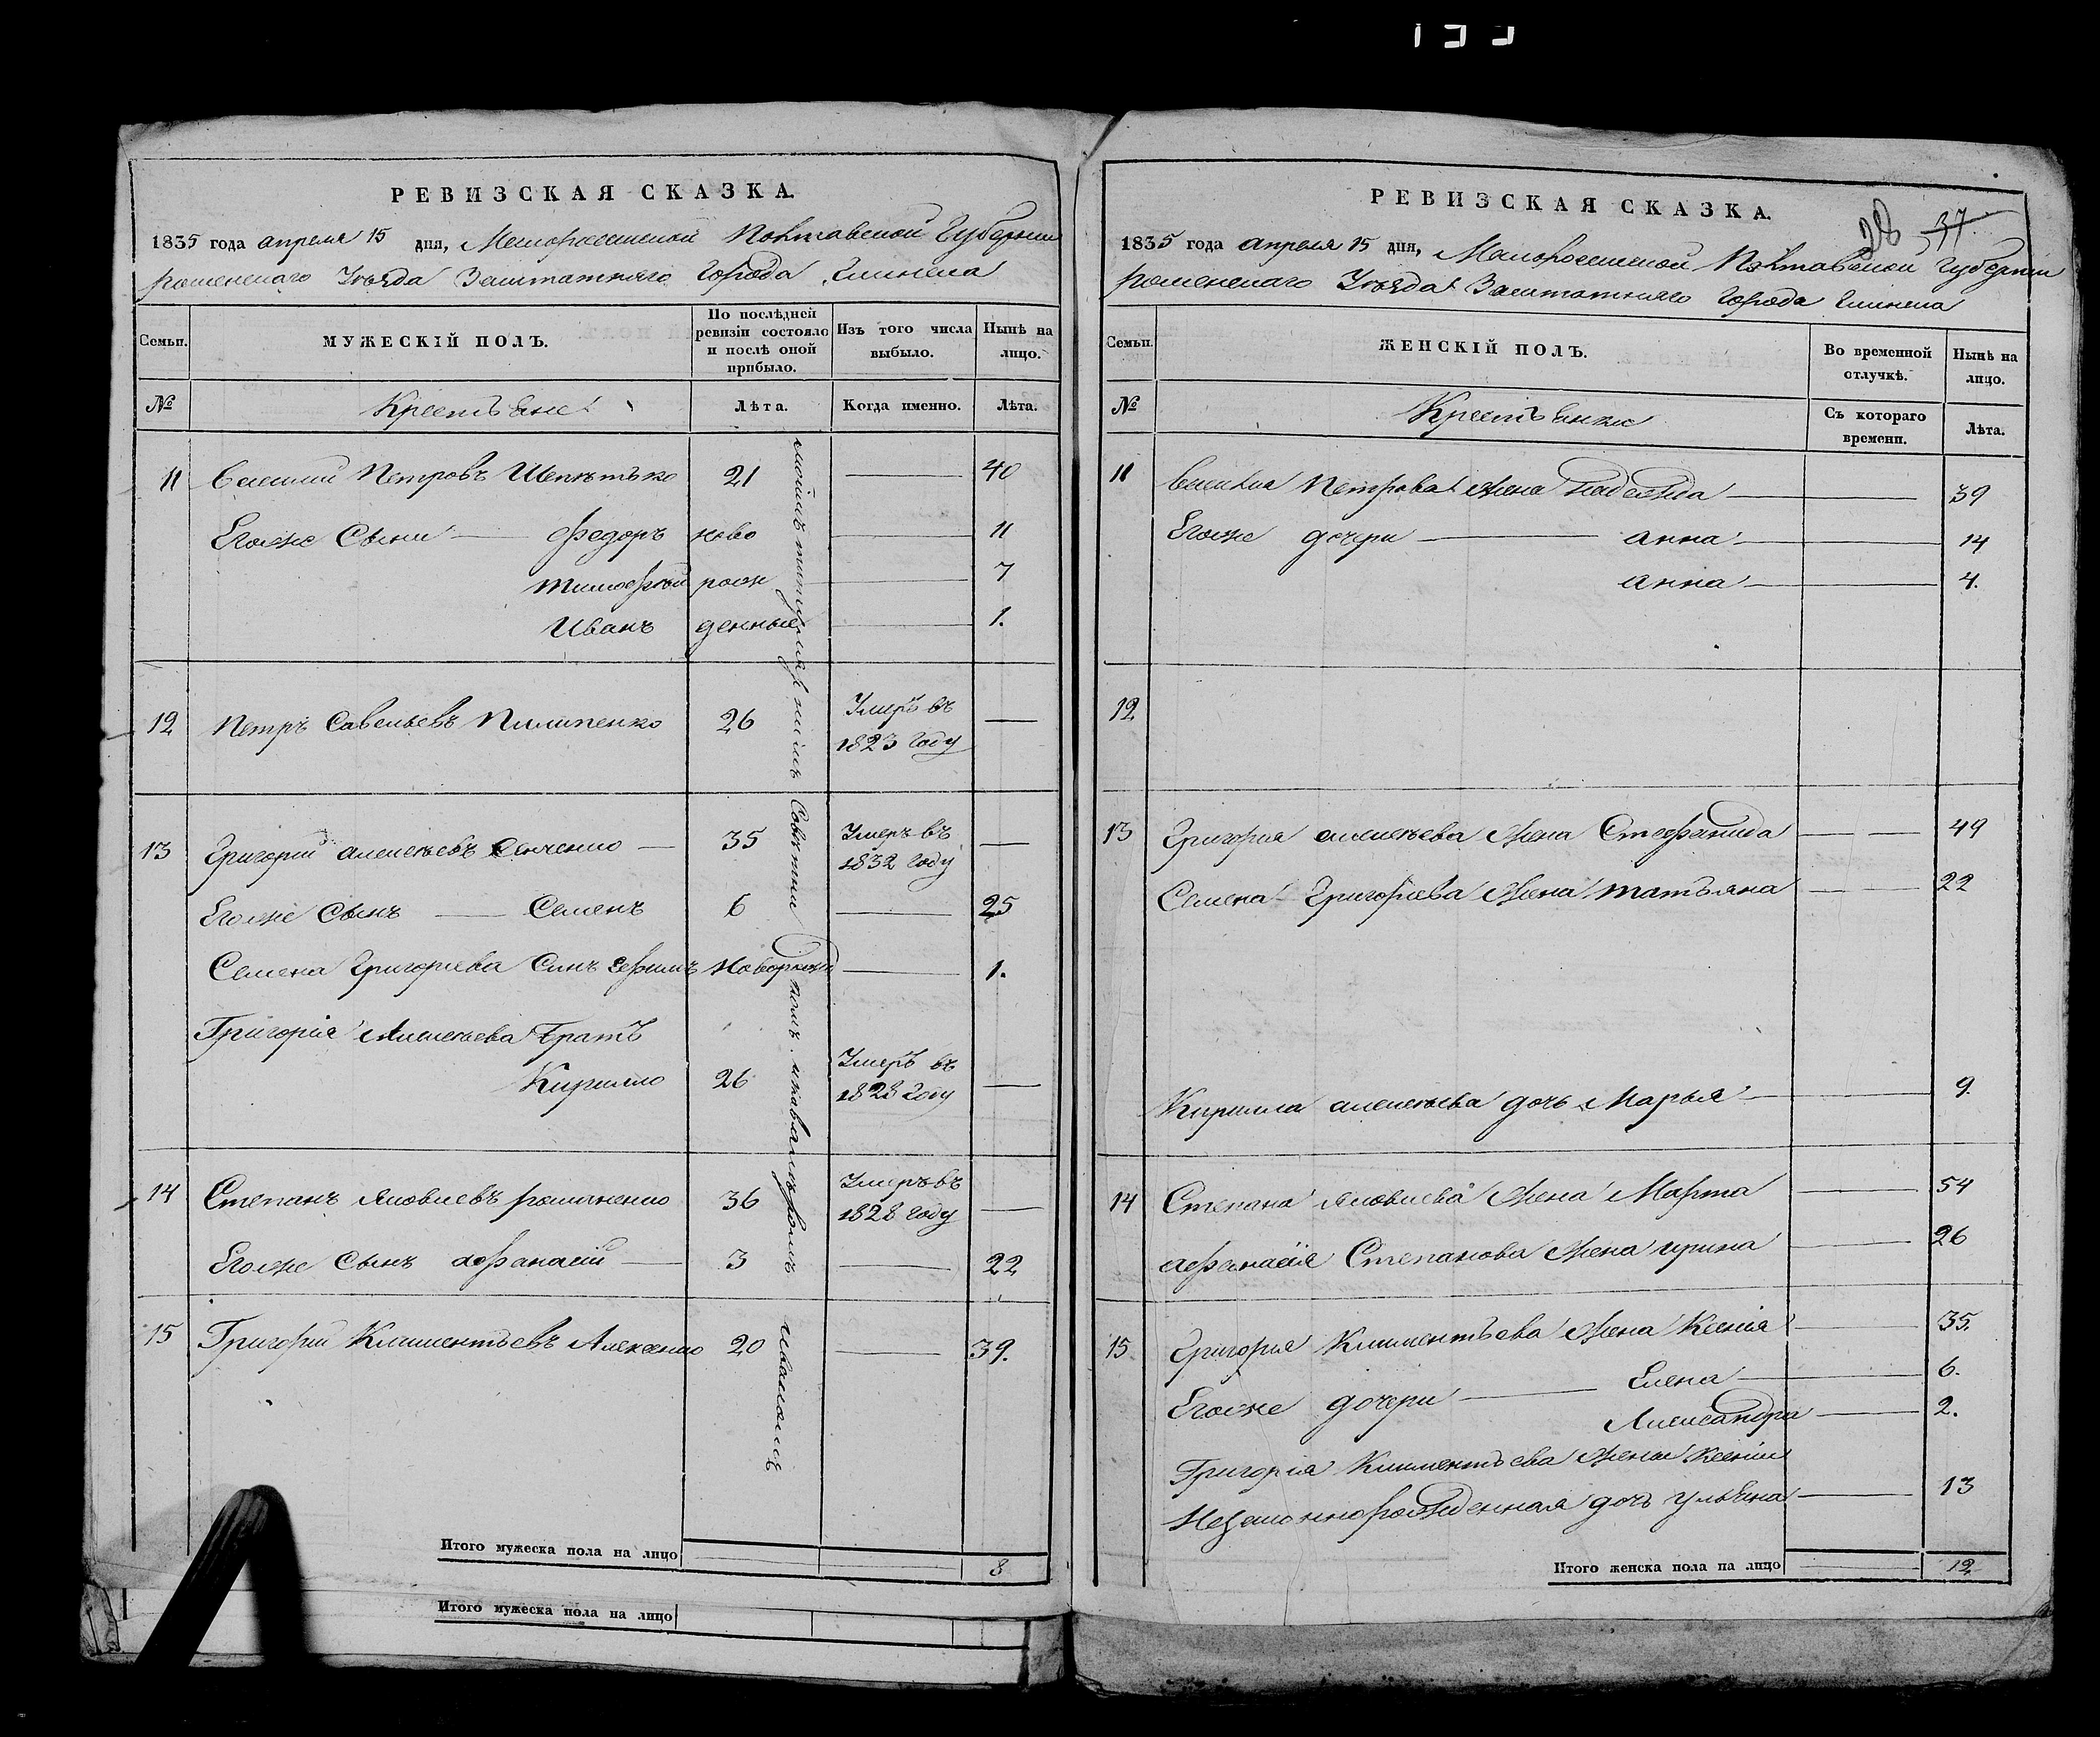 РЕВИЗСКАЯ СКАЗКА.
1835 года апреля 15 дня, Малороссийской Полтавской Губернии
роменского Уезда Заштатнаго Города Глинска
Семьи. МУЖЕСКІЙ ПОЛЪ. По послѣдней ревизіи состояло и послѣ оной прибыло. Изъ того числа выбыло. Нынѣ на лицо.
№ Крестьяне Лѣта. Когда именно. Лѣта.
11 Василий Петровъ 21 40
Егоже Сыни Федоръ ново 11
тимофей рож 7
Иванъ денные 1.
12 Петръ Савельевъ Пилипенко 26 Умеръ въ 1823 Году
13 Григорий алексеевъ 35 Умеръ въ 1832 Году
Егоже Сынъ Семенъ 6 25
Семена Григориева Сынъ Ефимъ Новорожд 1.
Григорія Алексеева братъ
Кирилло 26 Умеръ въ 1828 Году
14 Степанъ Яковлевъ 36 Умеръ въ 1828 Году
Егоже Сынъ афанасій 3 22
15 Григорий Климентьевъ Алексенко 20 39.
Итого мужеска пола на лицо 8
Итого мужеска пола на лицо
РЕВИЗСКАЯ СКАЗКА.
37
1835 года апреля 15 дня, Малороссийской Полтавской Губернии
роменского Уезда Заштатнаго Города Глинска
Семьи. ЖЕНСКІЙ ПОЛЪ. Во временной отлучкѣ. Нынѣ на лицо.
№ Крестьянки Съ котораго времени. Лѣта.
11 Василия Петрова жена надежда 39
Егоже дочери анна 14
анна 4.
12
13 Григория алексеева жена Стефанида 49
Семена Григориева жена татьяна 22
Кирилла алексеева дочь Марья 9.
14 Степана Яковлева жена Марта 54
афанасія Степанова жена ирина 26
15 Григория Климентьева жена Ксенія 35.
Егоже дочери Елена 6.
Александра 2.
Григория Климентьева жены Ксении
Незаконнорожденная дочь ульяна 13
Итого женска пола на лицо 12